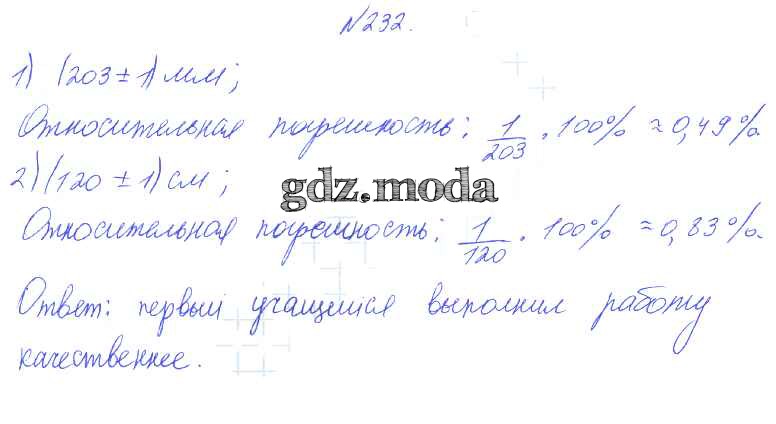 №232.
1) (203 ± 1) мм;
Относительная погрешность: 1/203 · 100% ≈ 0,49%.
2) (120 ± 1) см;
gdz.moda
Относительная погрешность: 1/120 · 100% ≈ 0,83%.
Ответ: первый учащийся выполнил работу
качественнее.